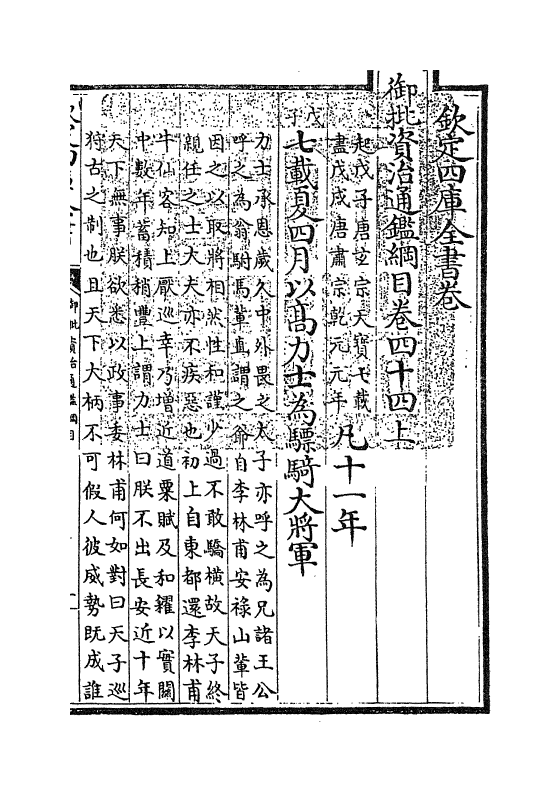 欽定四庫全書卷
御批資治通鑑綱目卷四十四上
起戊子唐玄宗天寶七載
盡戊戌唐肅宗乾元元年
凡十一年
戊子
七載夏四月以髙力士為驃騎大將軍
力士承恩歲久中外畏之太子亦呼之為兄諸王公
呼之為翁駙馬輩直謂之爺自李林甫安祿山輩皆
因之以取將相然性和謹少過不敢驕橫故天子終
親任之士大夫亦不疾惡也初上自東都還李林甫
牛仙客知上厭巡幸乃增近道粟賦及和糴以實關
中數年蓄積稍豐上謂力士曰朕不出長安近十年
天下無事朕欲悉以政事委林甫何如對曰天子巡
狩古之制也且天下大柄不可假人彼威勢既成誰
御批資治通鑑綱目